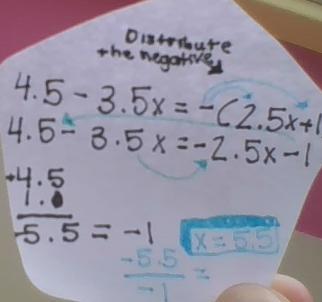 Distribute
the negative
4.5 - 3.5x = -(2.5x+1
4.5 - 3.5x = -2.5x-1
+4.5
1.0
-5.5 = -1
x = 5.5
-5.5
-1
=